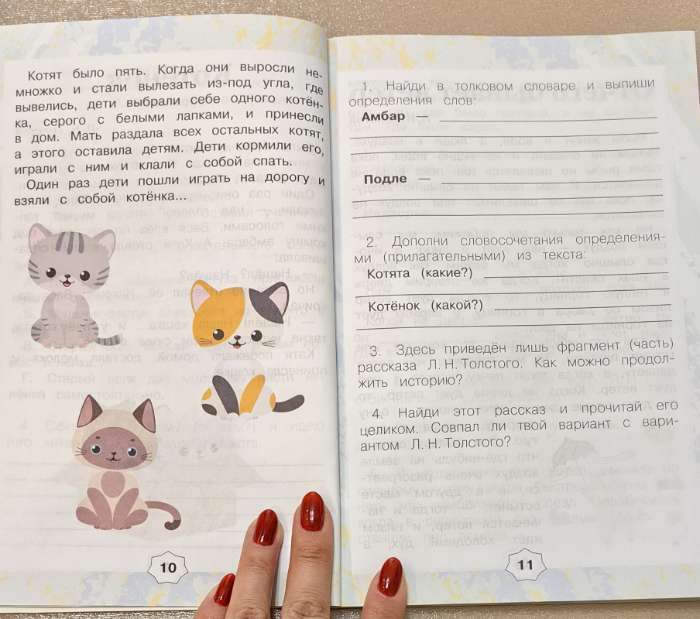 Котят было пять. Когда они выросли не-
множко и стали вылезать из-под угла, где
вывелись, дети выбрали себе одного котён-
ка, серого с белыми лапками, и принесли
в дом. Мать раздала всех остальных котят,
а этого оставила детям. Дети кормили его,
играли с ним и клали с собой спать.
Один раз дети пошли играть на дорогу и
взяли с собой котёнка...
10
1. Найди в толковом словаре и выпиши
определения слов:
Амбар —
Подле —
2. Дополни словосочетания определения-
ми (прилагательными) из текста:
Котята (какие?)
Котёнок (какой?)
3. Здесь приведён лишь фрагмент (часть)
рассказа Л. Н. Толстого. Как можно продол-
жить историю?
4. Найди этот рассказ и прочитай его
целиком. Совпал ли твой вариант с вари-
антом Л. Н. Толстого?
11